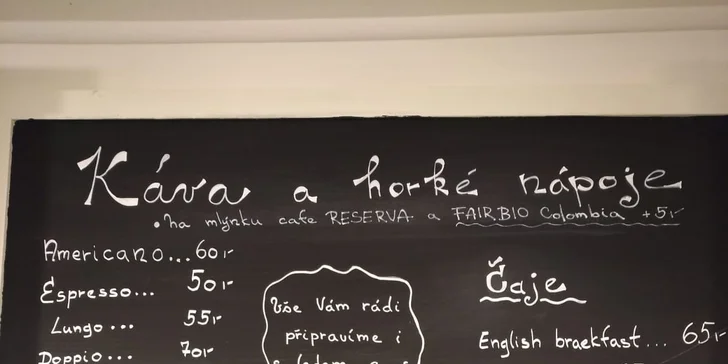 Káva a horké nápoje
• na mlýnku cafe RESERVA a FAIR.BIO Colombia +5,-
Americano... 60,-
Espresso... 50,-
Lungo ... 55,-
Doppio... 70,-
Vše Vám rádi
připravíme i
Čaje
English braekfast... 65,-